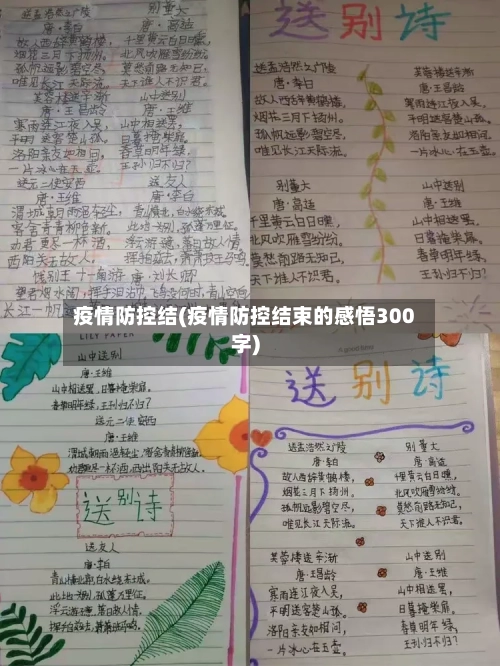 送孟浩然之广陵
唐·李白
故人西辞黄鹤楼，
烟花三月下扬州。
孤帆远影碧空尽，
唯见长江天际流。
芙蓉楼送辛渐
唐·王昌龄
寒雨连江夜入吴，
平明送客楚山孤。
洛阳亲友如相问，
一片冰心在玉壶。
送元二使安西
唐·王维
渭城朝雨浥轻尘，
客舍青青柳色新。
劝君更尽一杯酒，
西阳关无故人。
别董大
唐·高适
千里黄云白日曛，
北风吹雁雪纷纷。
莫愁前路无知己，
天下谁人不识君。
山中送别
唐·王维
山中相送罢，
日暮掩柴扉。
春草明年绿，
王孙归不归？
送友人
唐·李白
此地一别，孤蓬万里征。
浮云游子意，落日故人情。
唐·刘长卿
送别诗
送孟浩然之广陵
唐·李白
故人西辞黄鹤楼，
烟花三月下扬州。
孤帆远影碧空尽，
唯见长江天际流。
芙蓉楼送辛渐
唐·王昌龄
寒雨连江夜入吴，
平明送客楚山孤。
洛阳亲友如相问，
一片冰心在玉壶。
别董大
唐·高适
千里黄云白日曛，
北风吹雁雪纷纷，
莫愁前路无知己，
天下谁人不识君。
山中送别
唐·王维
山中相送罢，
日暮掩柴扉。
春草明年绿，
王孙归不归？
疫情防控结(疫情防控结束的感悟300
字)
LILY PAPER
山中送别
唐·王维
山中相送罢，日暮掩柴扉。
春草明年绿，王孙归不归？
送元二使安西
唐·王维
渭城朝雨浥轻尘，客舍青青柳色新。
劝君更尽一杯酒，西出阳关无故人。
送别诗
送友人
唐·李白
青山横北郭，白水绕东城。
此地一为别，孤蓬万里征。
浮云游子意，落日故人情。
挥手自兹去，萧萧班马鸣。
送别诗
送孟浩然之广陵
唐·李白
故人西辞黄鹤楼，
烟花三月下扬州。
孤帆远影碧空尽，
唯见长江天际流。
别董大
唐·高适
千里黄云白日曛，
北风吹雁雪纷纷。
莫愁前路无知己，
天下谁人不识君。
芙蓉楼送辛渐
唐·王昌龄
寒雨连江夜入吴，
平明送客楚山孤。
洛阳亲友如相问，
一片冰心在玉壶。
山中送别
唐·王维
山中相送罢，
日暮掩柴扉。
春草明年绿，
王孙归不归？